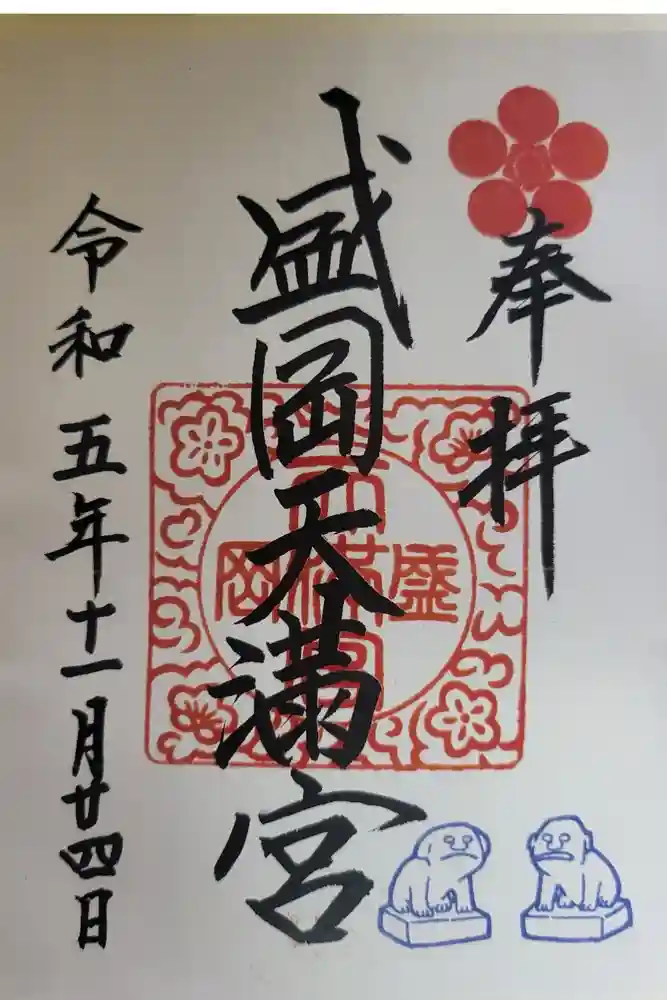 奉拝
盛岡天満宮
盛岡天満宮
令和五年十一月廿四日